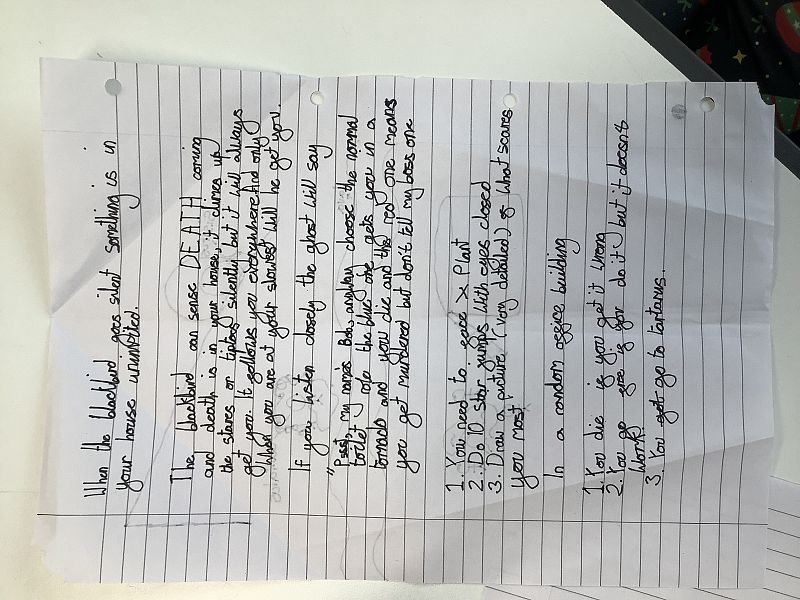 When the blackbird goes silent something is in
your house uninvited.
The blackbird can sense DEATH coming
and death is in your house, it climes up
the stares or tiptoes silently but it will always
get you. It follows you everywhere. And only
when you are at your slowest will he get you.
If you listen closely the ghost will say
"Pssst, my names Bob, anyway choose the normal
toilet role the blue one gets you in a
tornado and you die and the red one means
you get murdered but don't tell my boss one
1. You need to face X Plant
2. Do 10 star jumps with eyes closed
3. Draw a picture (very detailed) of what scares
you most
In a random office building
1. You die if you get it wrong
2. You go free if you do it but it doesn't
work
3. You get go to tartarus.